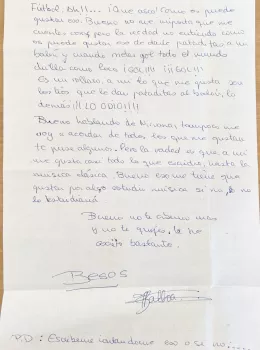 Fútbol. Ah!!... ¡Qué asco! Como os puede
gustar eso. Bueno no me importa que me
cuentes cosas pero la verdad no entiendo como
os puede gustar eso de darle pataditas a un
balón y cuando metes gol todo el mundo
chilla como loca ¡GOL!!! ¡¡¡GOL!!!
Es un rollazo, a mi lo que me gusta son
los tíos que le dan pataditas al balón, lo
demás ¡¡¡LO ODIO!!!!
Bueno hablando de música, tampoco me
voy a acordar de todos los que me gustan
te puse algunos. Pero la verdad es que a mi
me gusta casi todo lo que escucho, hasta la
música clásica. Bueno eso me tiene que
gustar por algo estudio música si no, no
la estudiaría.
Bueno no te aburro más
y no te quejes, te he
escrito bastante.
Besos
P.D: Escríbeme contándome eso o se no....